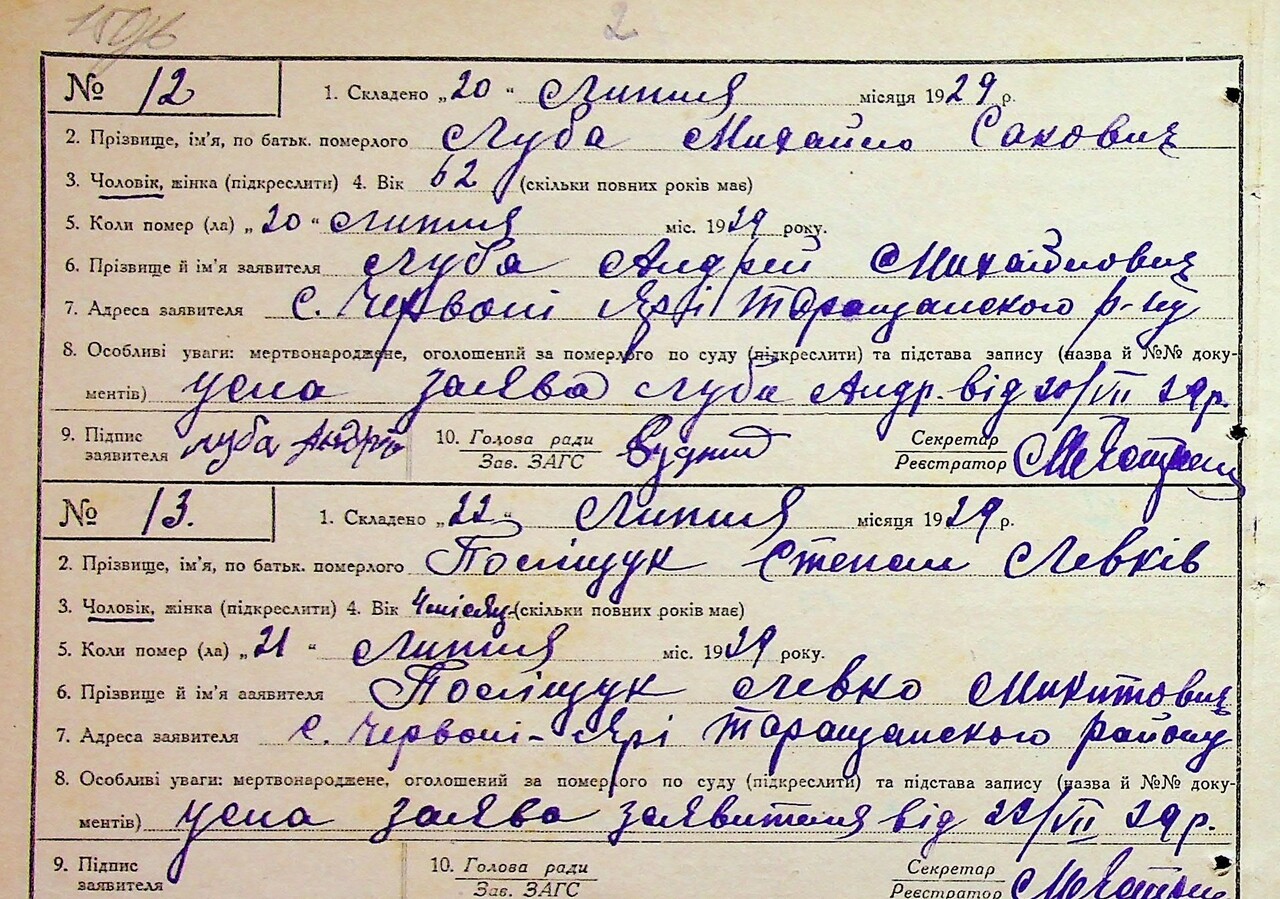 2
№ 12 1. Складено „20“ Липня місяця 1929 р.
2. Прізвище, ім'я, по батьк. померлого Луба Михайло Сакович
3. Чоловік, жінка (підкреслити) 4. Вік 62 (скільки повних років має)
5. Коли помер (ла) „20“ Липня міс. 1929 року.
6. Прізвище й ім'я заявителя Луба Андрей Михайлович
7. Адреса заявителя с. Червоні Ярі Таращанского р-ну
8. Особливі уваги: мертвонароджене, оголошений за померлого по суду (підкреслити) та підстава запису (назва й №№ доку-
ментів) усна заява Луба Андр. від 20/VII 29 р.
9. Підпис заявителя Луба Андрій 10. Голова ради Зав. ЗАГС Секретар Реєстратор
№ 13. 1. Складено „22“ Липня місяця 1929 р.
2. Прізвище, ім'я, по батьк. померлого Поліщук Степан Левків
3. Чоловік, жінка (підкреслити) 4. Вік 4 місяц. (скільки повних років має)
5. Коли помер (ла) „21“ Липня міс. 1929 року.
6. Прізвище й ім'я заявителя Поліщук Левко Микитович
7. Адреса заявителя с. Червоні-Ярі Таращанского району
8. Особливі уваги: мертвонароджене, оголошений за померлого по суду (підкреслити) та підстава запису (назва й №№ доку-
ментів) усна заява заявителя від 22/VII 29 р.
9. Підпис заявителя 10. Голова ради Зав. ЗАГС Секретар Реєстратор